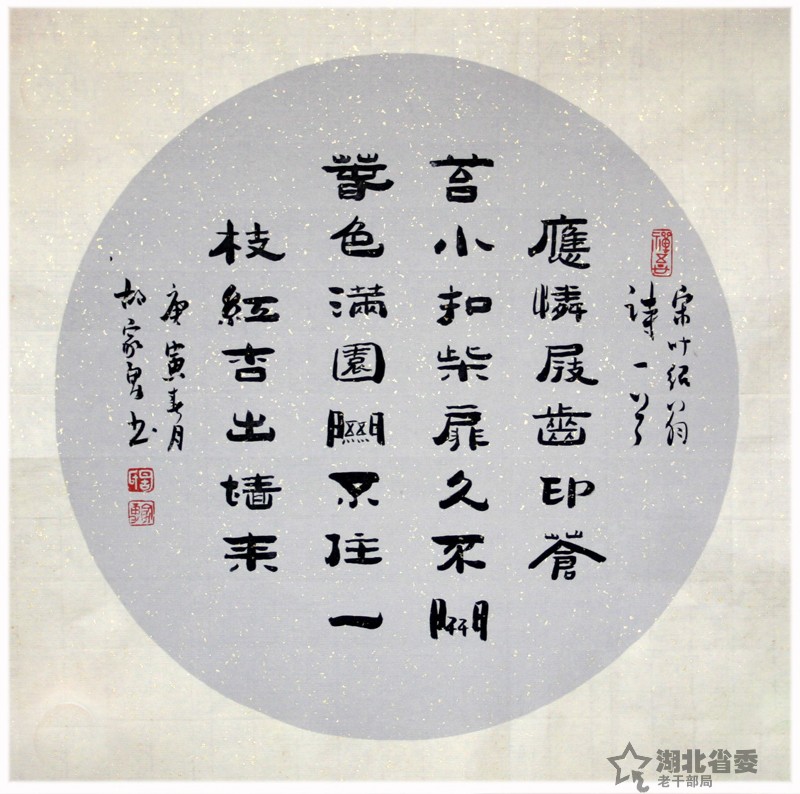 宋叶绍翁
诗一首
應憐屐齒印蒼
苔小扣柴扉久不開
春色滿園關不住一
枝紅杏出墙来
庚寅春月
胡家书
湖北省委
老干部局